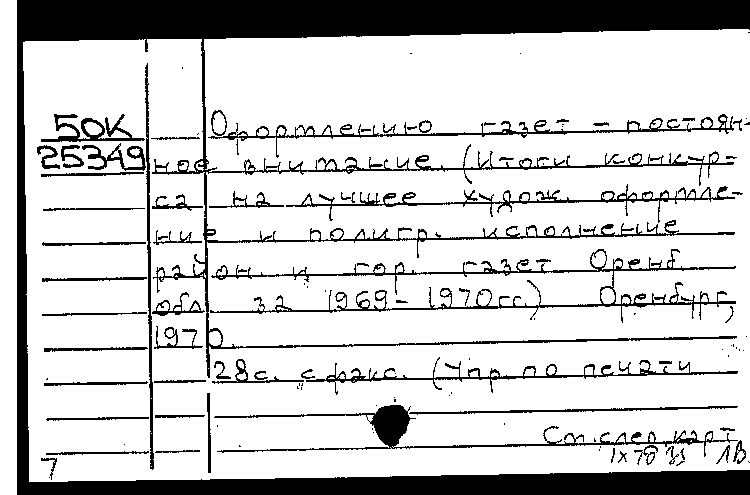 50К Оформлению газет - постоян-
25349 ное внимание. (Итоги конкур-
са на лучшее худож. оформле-
ние и полигр. исполнение
район. и гор. газет Оренб.
обл. за 1969-1970гг.) Оренбург,
1970.
28с. с факс. (Упр. по печати
См. след. карт
7